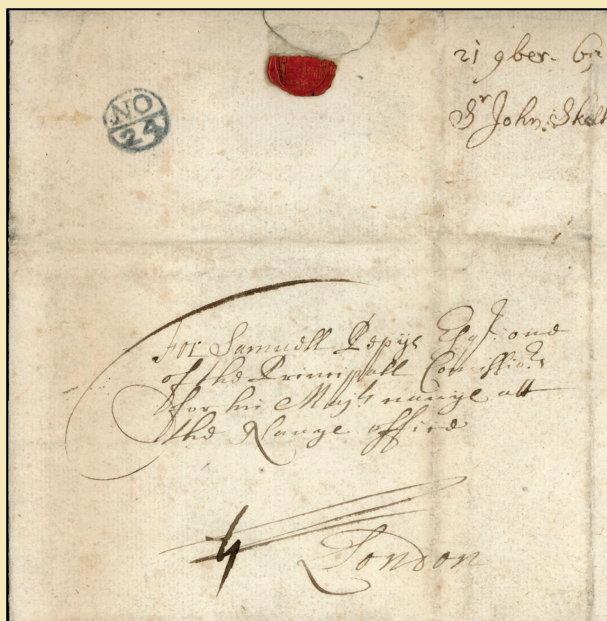 21 9ber.
Sr John. Skelt
NO
24
For Samuell Pepys Esqr. one
of the Principall
for his Majts navye att
the Navye office
4
London